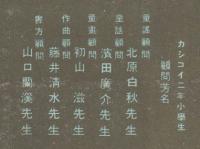 カシコイ二年小學生
顧問芳名
童謡顧問
北原白秋先生
童話顧問
濱田廣介先生
童畫顧問
初山滋先生
作曲顧問
藤井清水先生
書方顧問
山口蘭溪先生